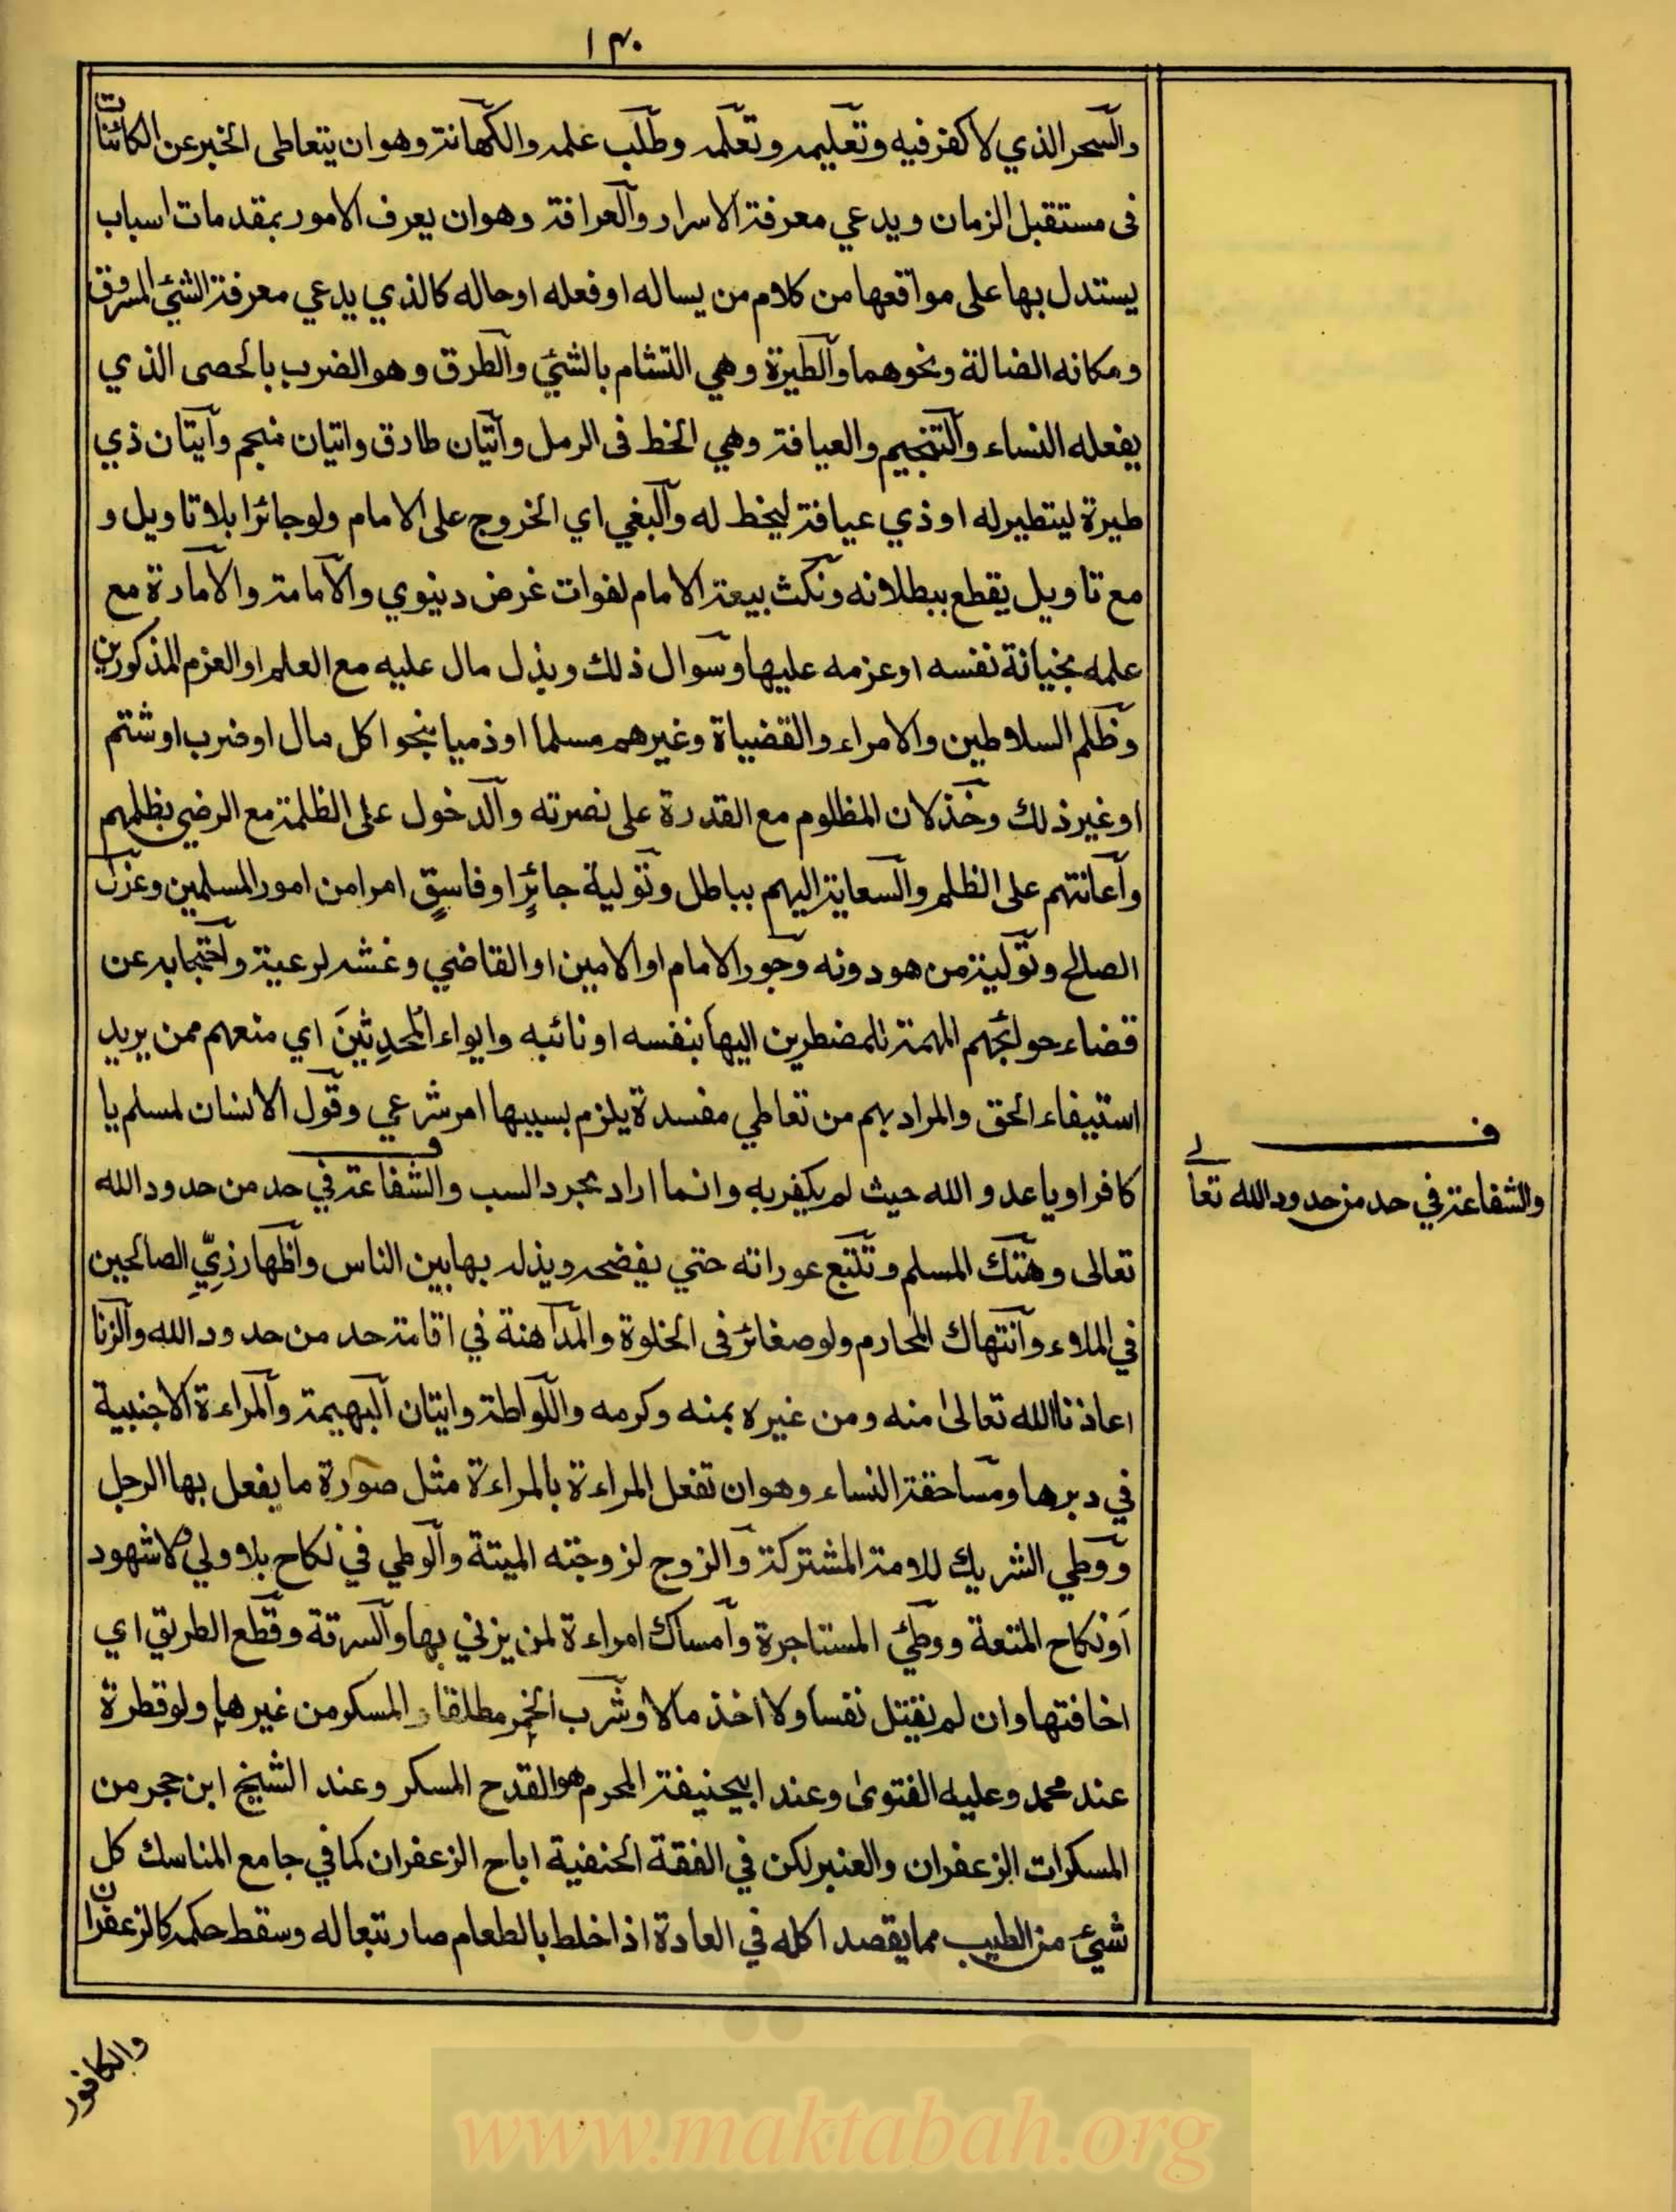 ١٣٠
والسحر الذي لا كفر فيه وتعليمه وتعلمه وطلب علمه والكهانة وهو ان يتعاطى الخبر عن الكائنات
فى مستقبل الزمان ويدعي معرفة الاسرار والعرافة وهو ان يعرف الامور بمقدمات اسباب
يستدل بها على مواقعها من كلام من يساله او فعله او حاله كالذي يدعي معرفة الشئ المسروق
ومكانه الضالة ونحوهما والطيرة وهي التشام بالشئ والطرق وهو الضرب بالحصى الذي
يفعله النساء والتنجيم والعيافة وهي الخط فى الرمل واتيان طارق واتيان منجم وايتان ذي
طيرة ليتطير له او ذي عيافة ليخط له والبغي اي الخروج على الامام ولو جائرا بلا تاويل و
مع تاويل يقطع ببطلانه ونكث بيعة الامام لفوات غرض دنيوي والامامة والامارة مع
علمه بخيانة نفسه او عزمه عليها وسوال ذلك وبذل مال عليه مع العلم او العزم المذكورين
وظلم السلاطين والامراء والقضياة وغيرهم مسلما او ذميا بنحو اكل مال او ضرب او شتم
او غير ذلك وخذلان المظلوم مع القدرة على نصرته والدخول على الظلمة مع الرضي بظلمهم
واعانتهم على الظلم والسعاية اليهم بباطل وتولية جائرٍ او فاسقٍ امرا من امور المسلمين وعزل
الصالح وتولية من هو دونه وجور الامام او الامين او القاضي وغشه لرعية واحتجابه عن
قضاء حوائجهم المهمة المضطرين اليها بنفسه او نائبه وايواء المُحدِثينَ اي منعهم ممن يريد
استيفاء الحق والمراد بهم من تعاطي مفسدة يلزم بسببها امر شرعي وقول الانسان لمسلم يا
كافر او يا عدو الله حيث لم يكفر به وانما اراد بمجرد السب والشفاعة في حد من حدود الله
تعالى وهتك المسلم وتتبع عوراته حتي يفضحه ويذله بها بين الناس واظهار زِيِّ الصالحين
في الملاء وانتهاك المحارم ولو صغائر فى الخلوة والمداهنة في اقامة حد من حدود الله والزنا
اعاذنا الله تعالى منه ومن غيره بمنه وكرمه واللواطة وايتان البهيمة والمراءة الاجنبية
في دبرها ومساحقة النساء وهو ان تفعل المراءة بالمراءة مثل صورة ما يفعل بها الرجل
ووطي الشريك للامة المشتركة والزوج لزوجته الميتة والوطي في نكاح بلا ولي ولا شهود
او نكاح المتعة ووطئ المستاجرة وامساك امراءة لمن يزني بها والسرقة وقطع الطريق اي
اخافتها وان لم نقتل نفسا ولا اخذ مالا وشرب الخمر مطلقا والمسكر من غيرها ولو قطرة
عند محمد وعليه الفتوى وعند ابيحنيفة المحرم هو القدح المسكر وعند الشيخ ابن حجر من
المسكرات الزعفران والعنبر لكن في الفقة الحنفية اباح الزعفران كما في جامع المناسك كل
شيئ من الطيب مما يقصد اكله في العادة اذا خلط بالطعام صار تبعا له وسقط حكمه كالزعفران
ف
والشفاعة في حد من حدود الله تعالى
والكافور
www.maktabah.org